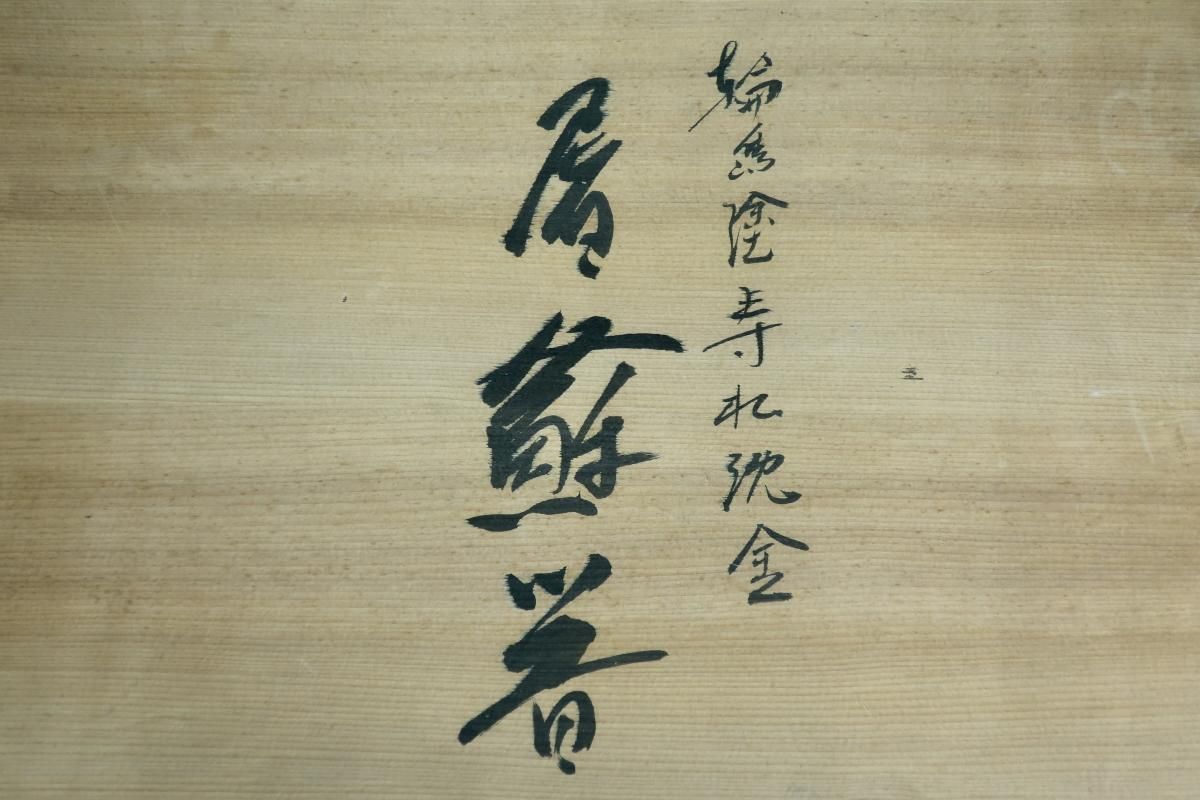 輪島塗寿松沈金
屠蘇器